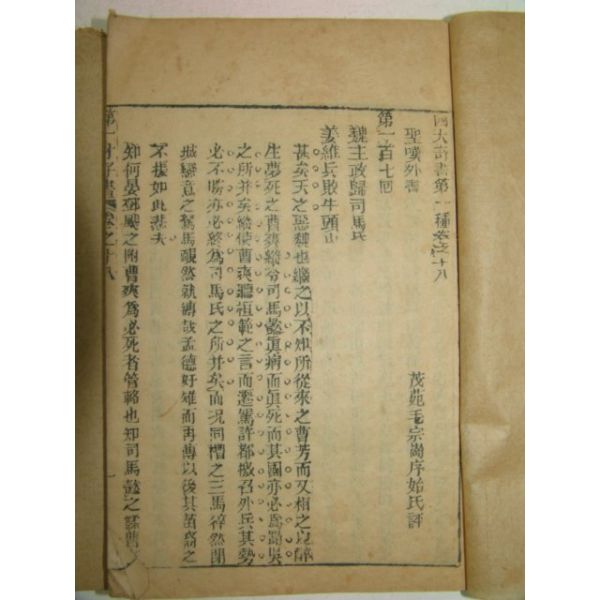 四大奇書第一種卷之十八
聖嘆外書
茂苑毛宗崗序始氏評
第一百七回
魏主政歸司馬氏
姜維兵敗牛頭山
甚矣天之惡魏也繼之以不知所從來之曹芳而又相之以醉
生夢死之曹爽縱令司馬懿真病而真死而其國亦必為蜀吳
之所并矣縱使曹爽聽桓範之言而遷駕許都檄召外兵其勢
必不勝亦必終為司馬氏之所并矣而况同槽之三馬猝然閉
城戀豆之駑馬靦然就縛哉孟德奸雄而再傳以後其苗裔之
不振如此悲夫
知何晏鄧颺之附曹爽為必死者管輅也知司馬懿之謀曹
第一才子書 卷之十八
一